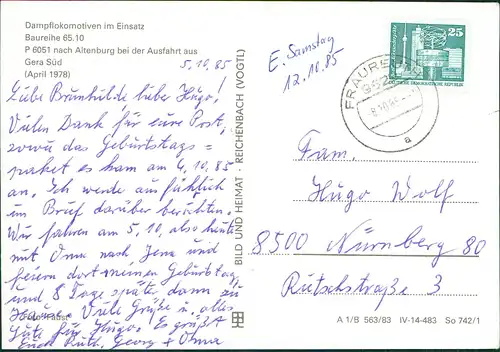 Dampflokomotiven im Einsatz
Baureihe 65.10
P 6051 nach Altenburg bei der Ausfahrt aus
Gera Süd
(April 1978)
5.10.85
Liebe Brunhilde lieber Hugo!
Vielen Dank für eure Post,
sowie das Geburtstags=
paket es kam am 4.10.85
an. Ich werde ausführlich
im Brief darüber berichten.
Wir fahren am 5.10, also heute
mit Oma nach Jena und
feiern dort meinen Geburtstag
und 8 Tage später dann zu
Hause. Viele Grüße u. alles
Gute für Hugo. Es grüßt
Euch Ruth, Georg + Oma
BILD UND HEIMAT · REICHENBACH (VOGTL)
E. Samstag
12.10.85
25
DEUTSCHE DEMOKRATISCHE REPUBLIK
FRAUREUTH
a
Fam.
Hugo Wolf
8500 Nürnberg 80
Rütschstraße 3
A 1/B 563/83 IV-14-483 So 742/1